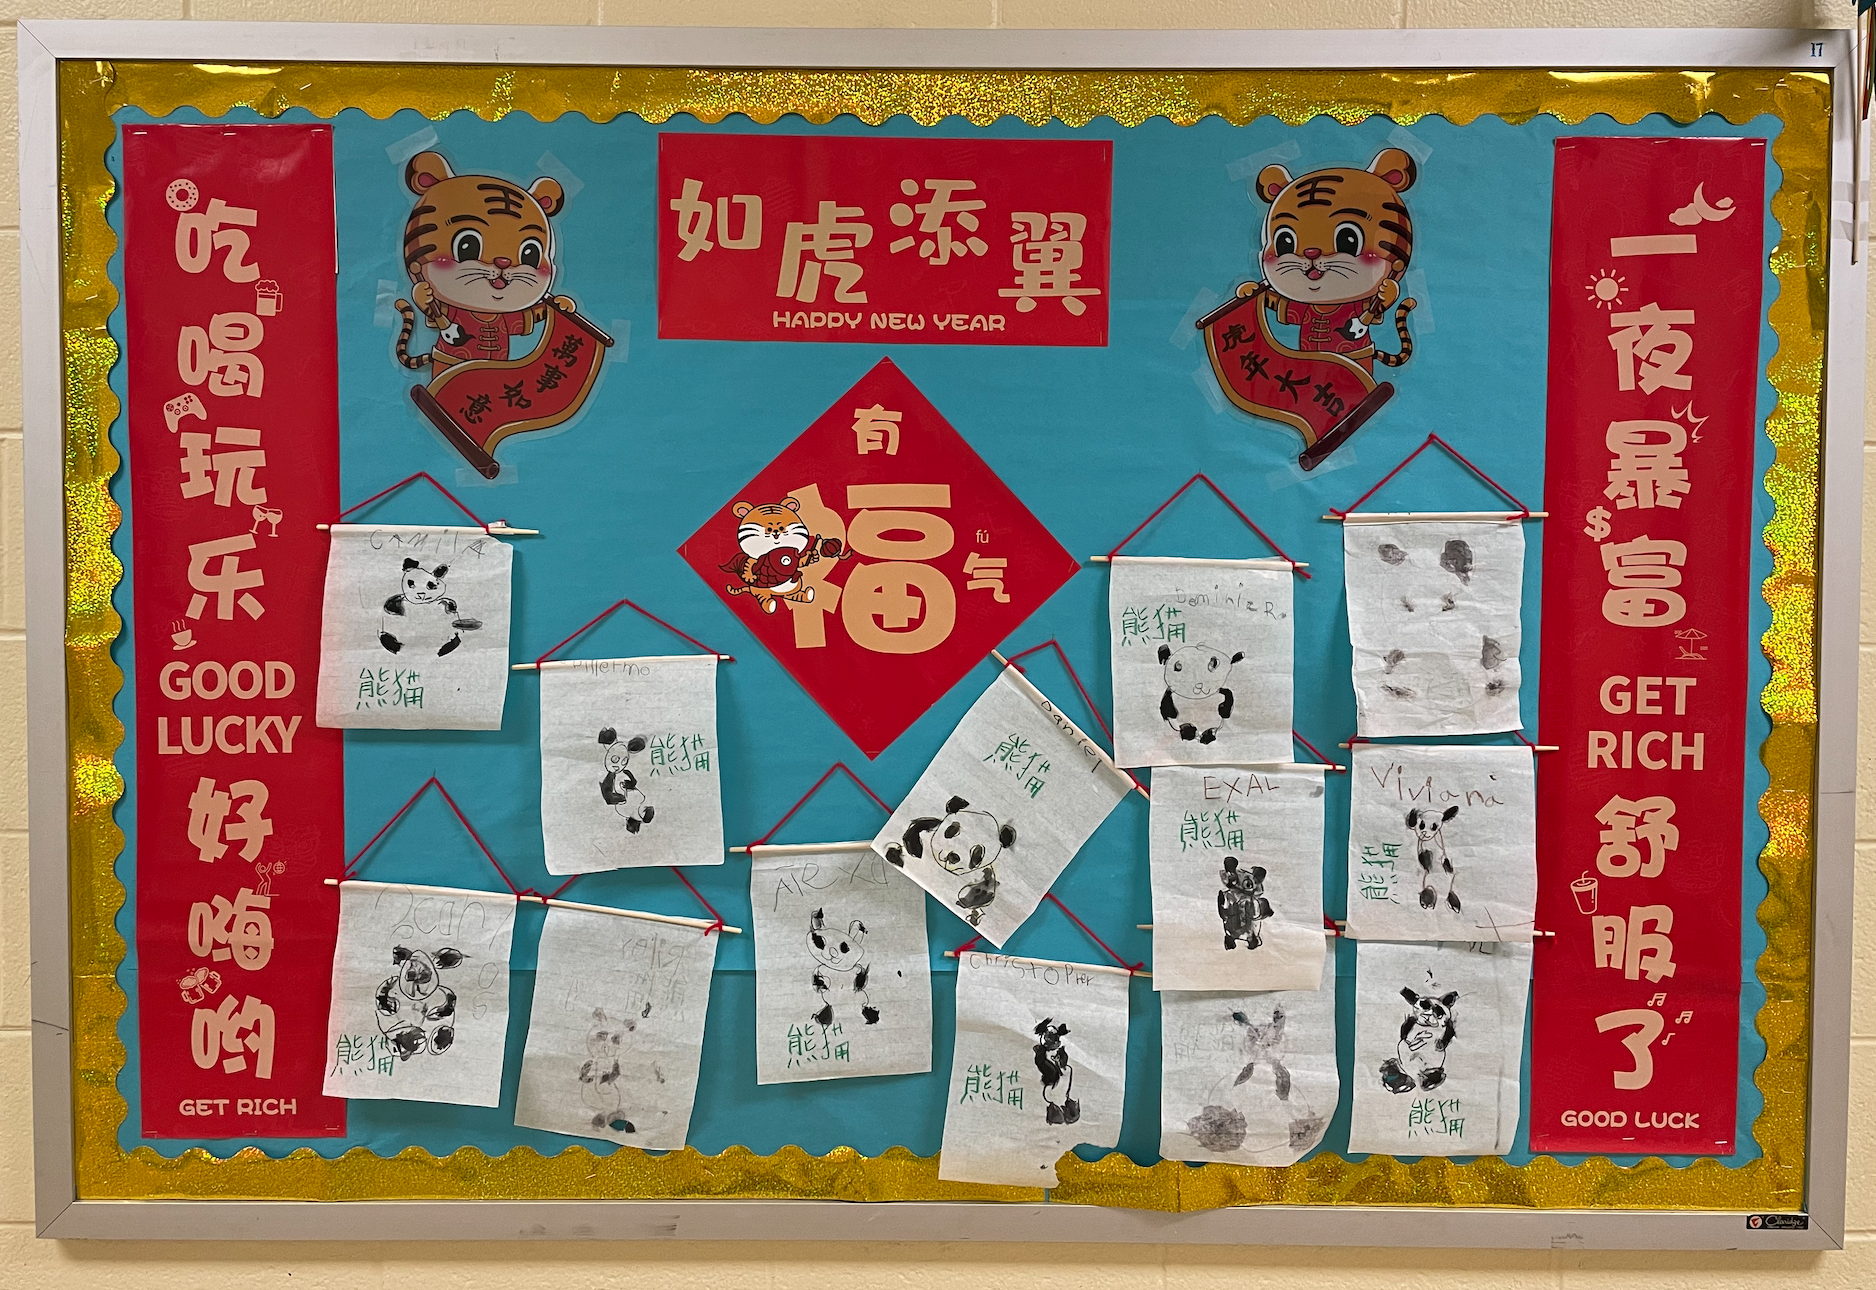 17
如虎添翼
HAPPY NEW YEAR
吃喝玩乐
GOOD
LUCKY
好嗨哟
GET RICH
萬事如意
虎年大吉
有
福
fú
气
一夜暴富
GET
RICH
舒服了
GOOD LUCK
CAMilA
熊猫
熊猫
Daniel
熊猫
熊猫
EXAL
熊猫
Viviana
熊猫
熊猫
Alexa
熊猫
Christopher
熊猫
熊猫
Claridge